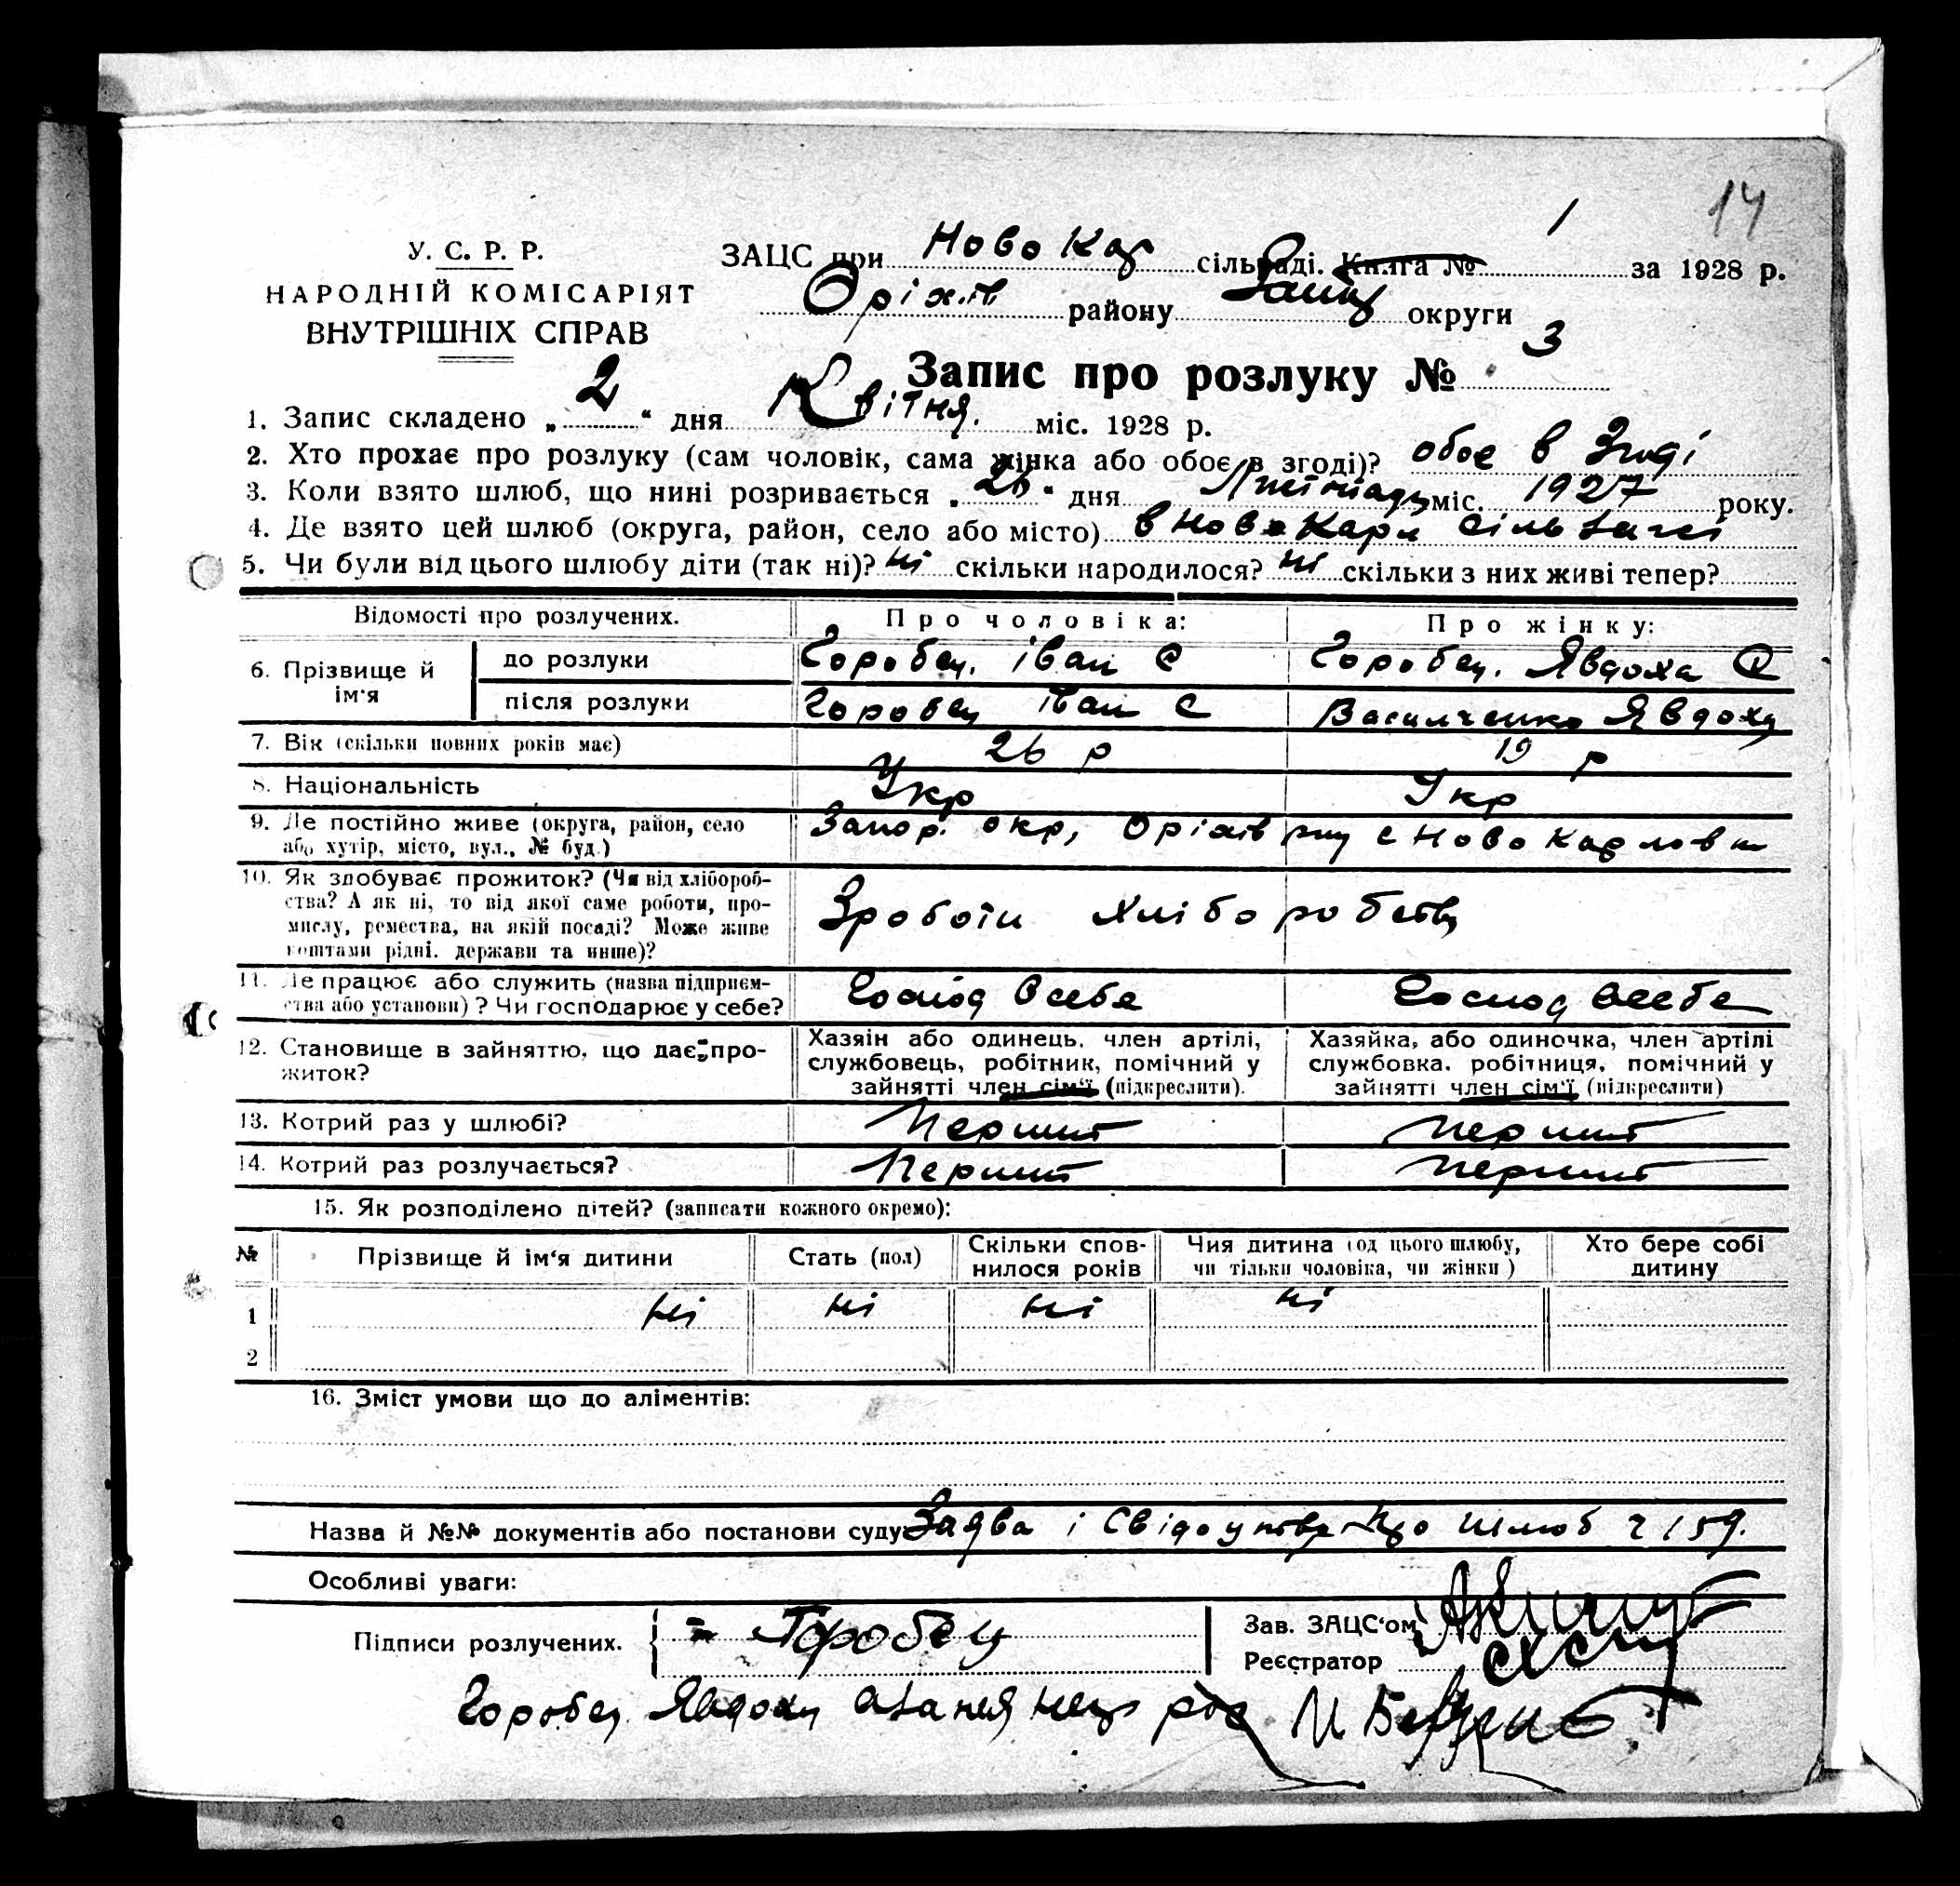 14
У. С. Р. Р.
НАРОДНІЙ КОМІСАРІЯТ
ВНУТРІШНІХ СПРАВ
ЗАЦС при Ново Кар сільраді. Книга № 1 за 1928 р.
Оріхів району Запор округи
Запис про розлуку № 3
1. Запис складено „2“ дня Квітня міс. 1928 р.
2. Хто прохає про розлуку (сам чоловік, сама жінка або обоє в згоді)? обоє в Згоді
3. Коли взято шлюб, що нині розривається „26“ дня Листопаду міс. 1927 року.
4. Де взято цей шлюб (округа, район, село або місто) в Ново Карл
5. Чи були від цього шлюбу діти (так ні)? ні скільки народилося? ні скільки з них живі тепер?
Відомості про розлучених. Про чоловіка: Про жінку:
6. Прізвище й ім'я до розлуки Горобец. Іван С Горобец. Явдоха
після розлуки Горобец Іван С Василченко Явдоха
7. Вік (скільки повних років має) 26 р 19 р
8. Національність Укр Укр
9. Де постійно живе (округа, район, село
або хутір, місто, вул., № буд.) Запор. окр, Оріхів рну с Ново Карловки
10. Як здобуває прожиток? (Чи від хлібороб-
ства? А як ні, то від якої саме роботи, про-
мислу, ремества, на якій посаді? Може живе
коштами рідні, держави та инше)? Зроботи хлібо робств
11. Де працює або служить (назва підприєм-
ства або установи)? Чи господарює у себе? Господ всебе Господ всебе
12. Становище в зайняттю, що дає про-
житок?
Хазяїн або одинець, член артілі,
службовець, робітник, помічний у
зайнятті член сім'ї (підкреслити).
Хазяйка, або одиночка, член артілі
службовка, робітниця, помічний у
зайнятті член сім'ї (підкреслити)
13. Котрий раз у шлюбі? Перший Перший
14. Котрий раз розлучається? Перший Перший
15. Як розподілено дітей? (записати кожного окремо):
№ Прізвище й ім'я дитини Стать (пол) Скільки спов-
нилося років Чия дитина (од цього шлюбу,
чи тільки чоловіка, чи жінки) Хто бере собі
дитину
1 ні ні ні ні
2
16. Зміст умови що до аліментів:
Назва й №№ документів або постанови суду Заява і Свідоцтва про Шлюб ч 159.
Особливі уваги:
Підписи розлучених. Горобец
Зав. ЗАЦС'ом
Реєстратор
Горобец Явдохи